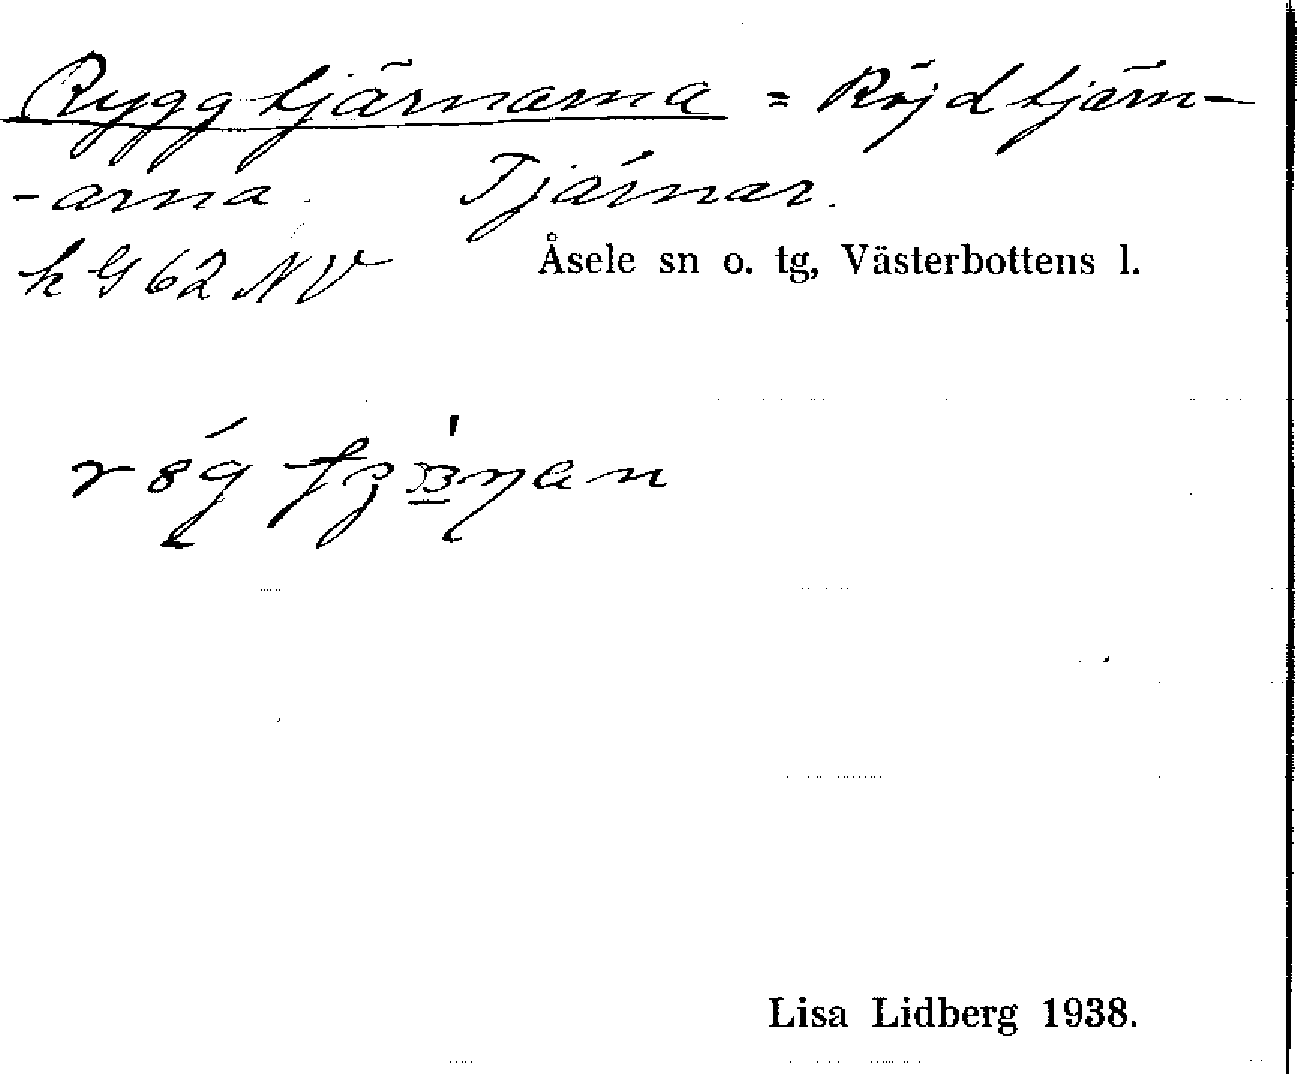 Ryggtjärnarna = Röjdtjärn-
-arna. Tjärnar.
k G 62 NV Åsele sn o. tg, Västerbottens l.
Lisa Lidberg 1938.